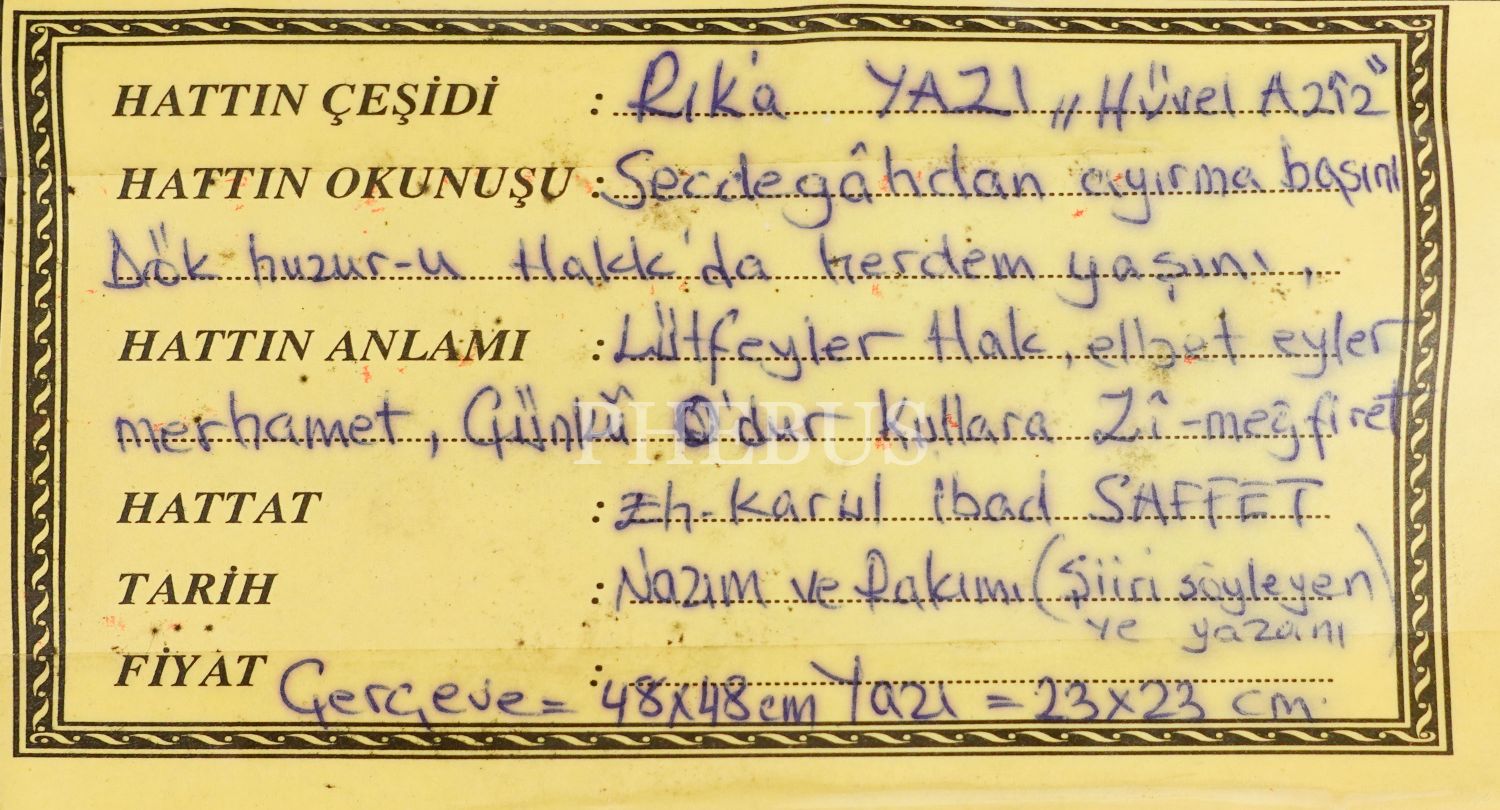 HATTIN ÇEŞİDİ : Rık'a YAZI „Hüvel Azîz"
HATTIN OKUNUŞU : Secdegâhdan ayırma başını
Dök huzur-u Hakk'da herdem yaşını,
HATTIN ANLAMI : Lütfeyler Hak, elbet eyler
merhamet, Çünkü O'dur Kullara Zî-meğfiret
PHEBUS
HATTAT : ibad SAFFET
TARİH : Nazım ve Rakımı (Şiiri söyleyen
ve yazanı)
FİYAT :
Çerçeve = 48x48cm Yazı = 23x23 cm.